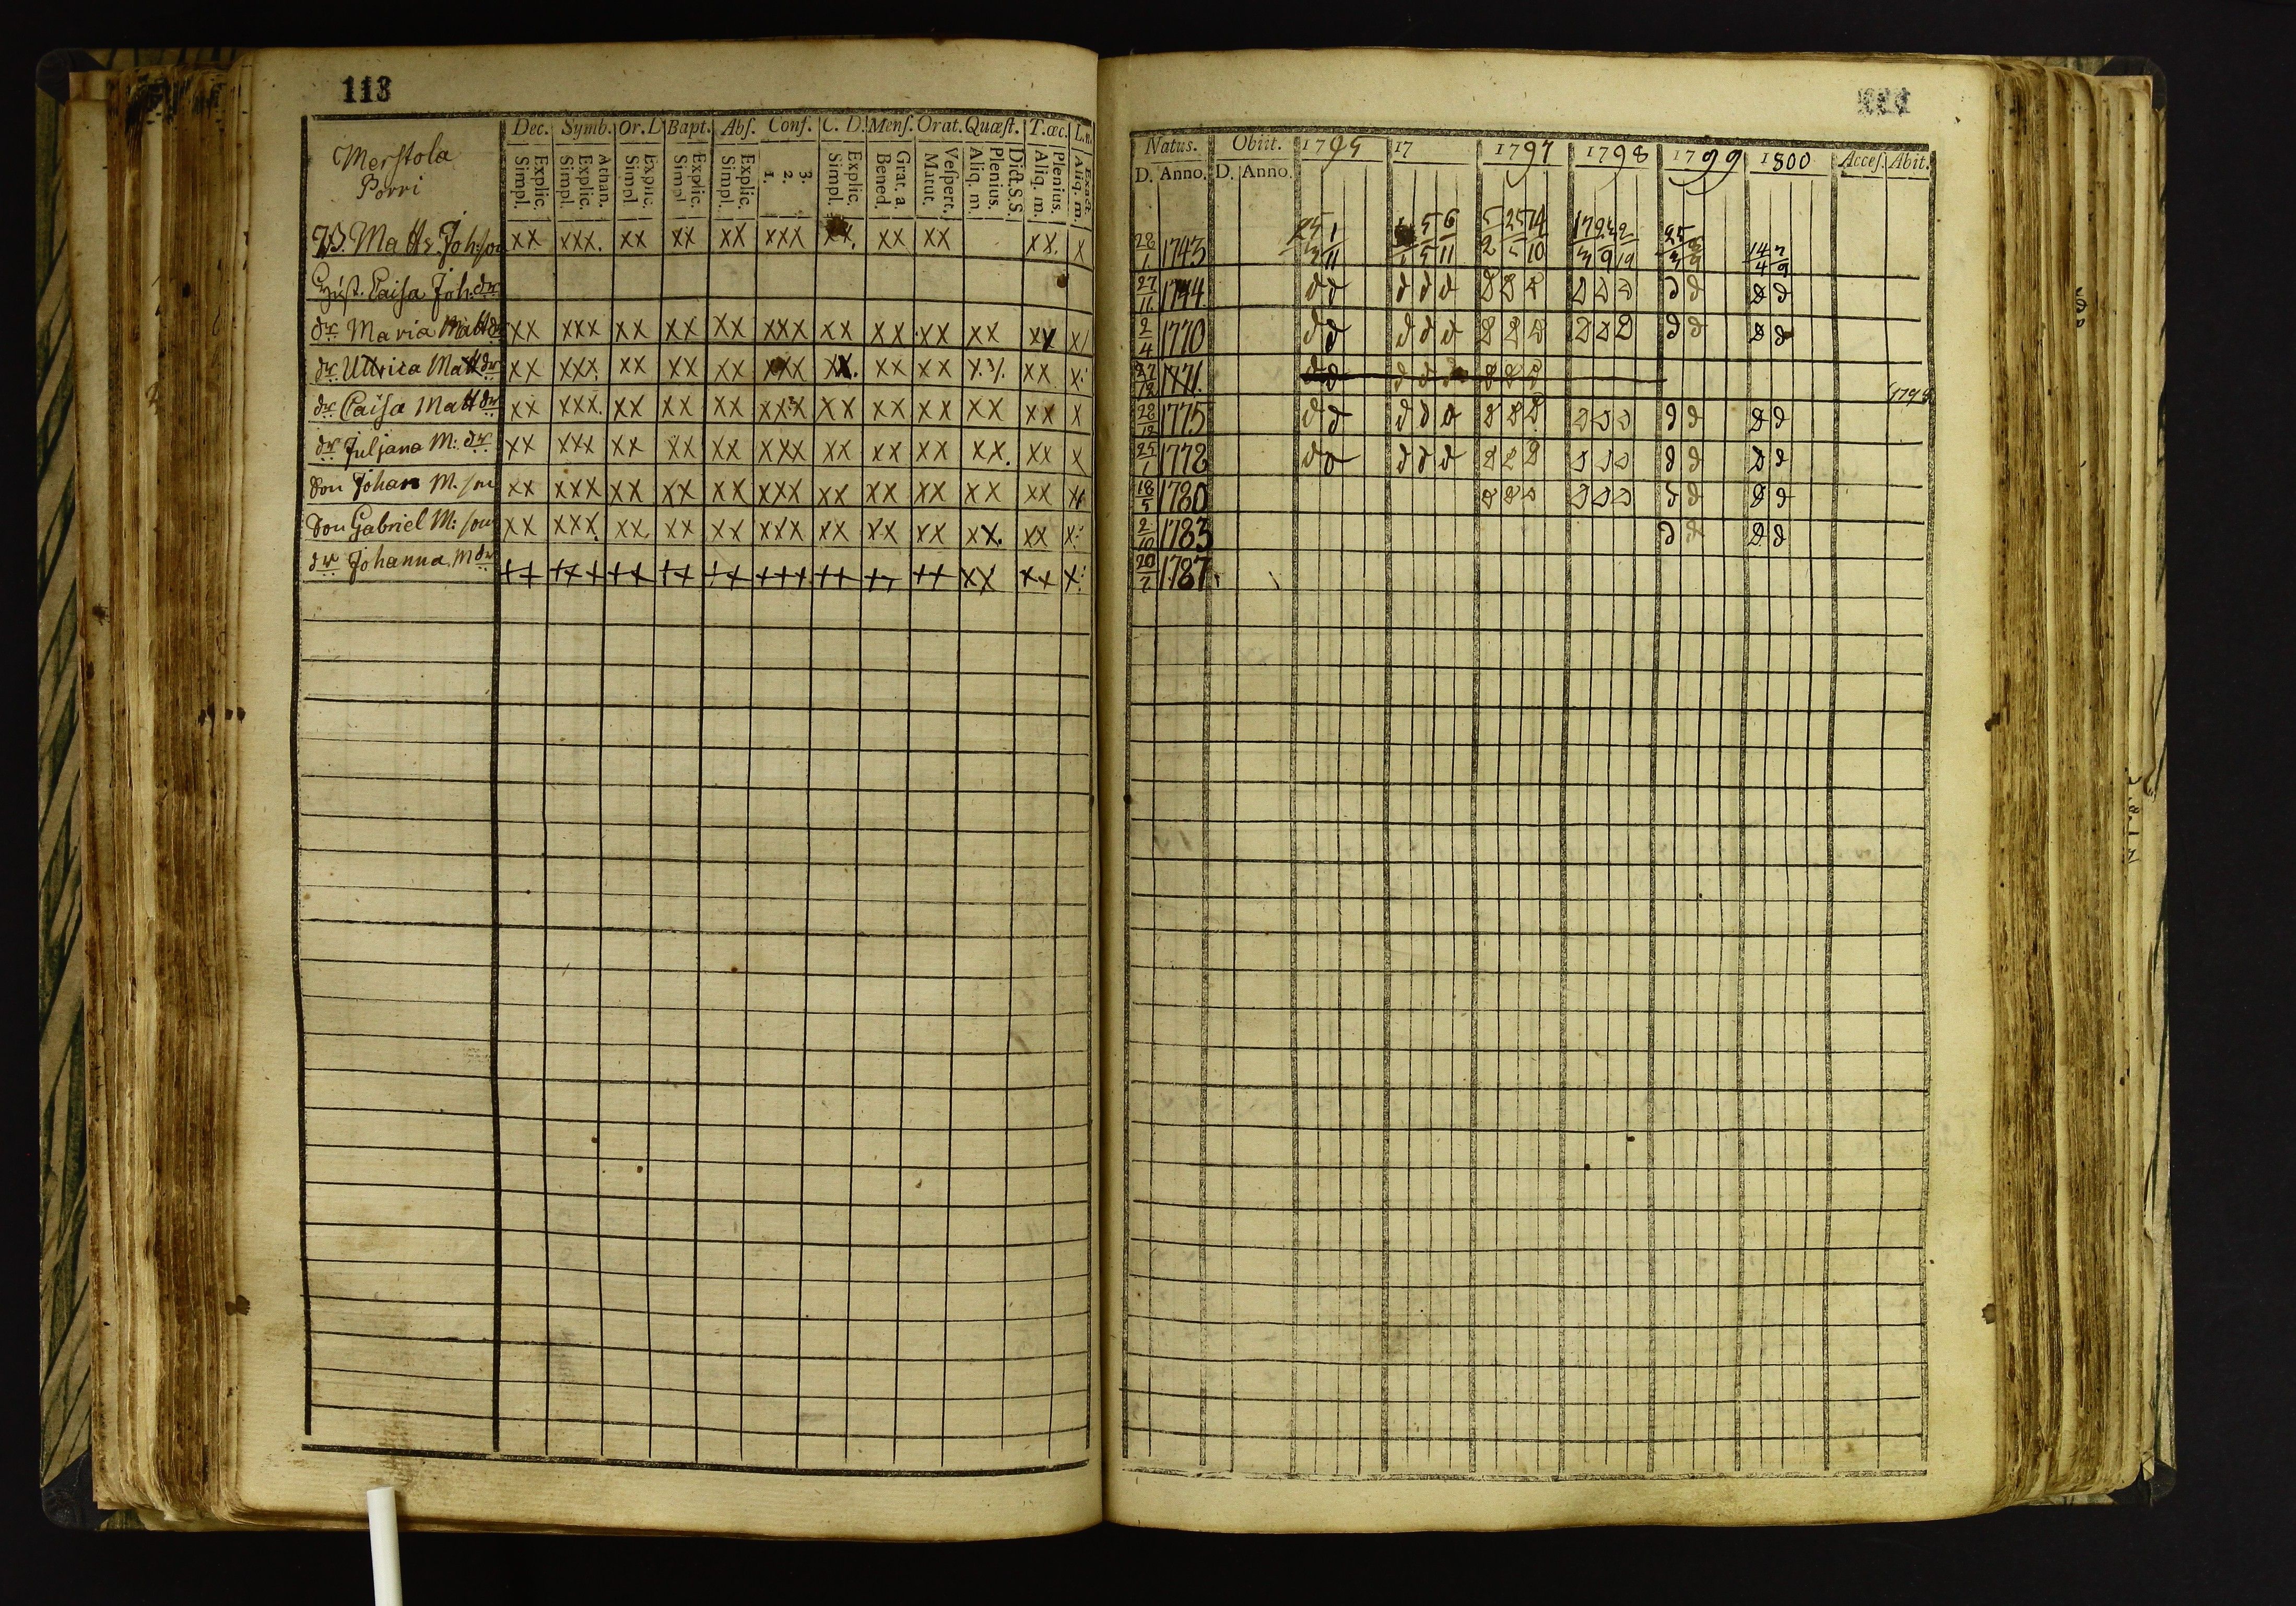 113
Dec. Symb. Or. D Bapt. Abſ. Conf. C. D. Menſ. Orat. Quæſt. T. œc. L.n.
Explic. Simpl. Athan. Explic. Simpl. Explic. Simpl. Explic. Simpl. Explic. Simpl. 3. 2. 1. Explic. Simpl. Grat. a. Bened. Veſpert. Matut. Dict. S.S. Plenius. Aliq. m. Plenius. Aliq. m. Exact. Aliq. m.
Merstola
Porri
B. Matts Joh:son xx xxx. xx xx xx xxx xx. xx xx xx. x
Hust. Caisa Joh.dr
dr Maria Matt dr xx xxx xx xx xx xxx xx xx xx xx xx x
dr Ulrica Matt dr xx xxx xx xx xx xxx xx. xx xx x.x. xx x
dr Caisa Matt dr xx xxx. xx xx xx xxx xx xx xx xx xx x
dr Juljana M: dr xx xxx xx xx xx xxx xx xx xx xx. xx x
Son Johan M. son xx xxx xx xx xx xxx xx xx xx xx xx x
Son Gabriel M: son xx xxx xx xx xx xxx xx xx xx xx. xx x
dr Johanna M dr ++ +++ ++ ++ ++ +++ ++ ++ ++ xx xx x
Natus. Obiit. 1795 17 1797 1798 1799 1800 Acceſ. Abit.
D. Anno. D. Anno.
28/1 1743
27/11 1744
2/4 1770
27/12 1771 1798
28/12 1775
25/1 1778
18/5 1780
2/10 1783
20/7 1787